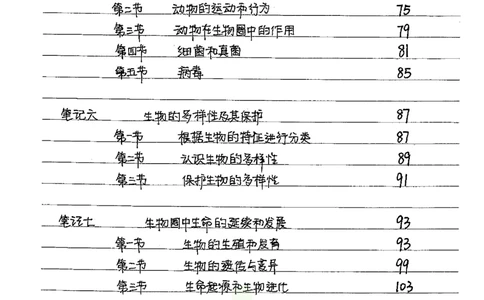 第二节 动物的运动和行为 75
第三节 动物在生物圈中的作用 79
第四节 细菌和真菌 81
第五节 病毒 85
笔记六 生物的多样性及其保护 87
第一节 根据生物的特征进行分类 87
第二节 认识生物的多样性 89
第三节 保护生物的多样性 91
笔记七 生物圈中生命的延续和发展 93
第一节 生物的生殖和发育 93
第二节 生物的遗传与变异 99
第三节 生命起源和生物进化 103